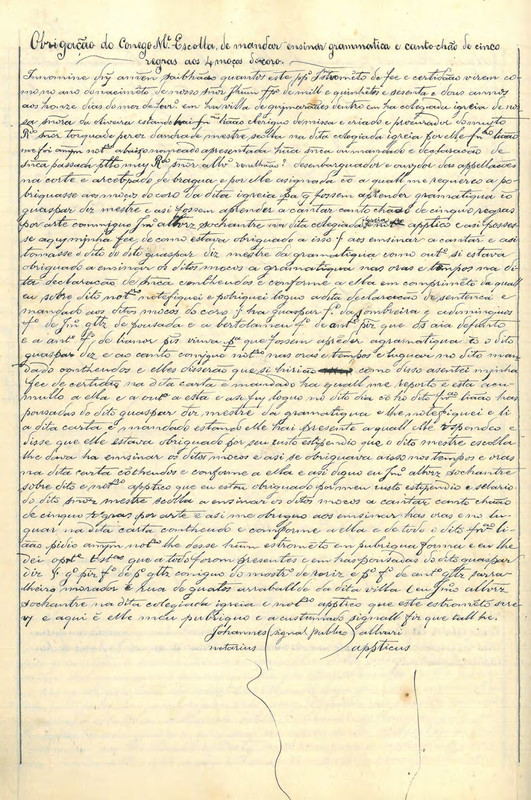 Obrigação do Conego M.e Escolla, de mandar ensinar grammatica e canto chão de cinco
regras aos 4 moços do coro.
In nomine dñj amen saibhão quantos este pp.co Estromẽto de fee e certidão verem co
mo no ano do nacimẽto de nosso snõr de mill e quinhẽtos e sesenta e dous annos
aos honze dias do mes de em ha villa de guimarães dentro em ha colegiada igreia de no
sa snõra da oliveira estando hai lião cleriguo de missa e criado e procurador do muyto
R.do snõr torquade perez dandrade mestre scolla na dita colegiada igreia por elle lião
me foi a mym not.o abaixo nomeado apresentada hũa snca ou mandado e declarasão de
snca passada pllo muy R.do snõr desenbarguador e ouvydor das appellacoes
na corte e arcebpado de bragua e por elle asignada cõ a quall me requereo a po
briguasse aos moços do coro da dita igreia pa q fossem aprender gramatiqua cõ
guaspar diz mestre e asi fossem aprender a cantar canto chão de cinquo regras
por arte commiguo Jmo alvrz sochantre na dita colegiada apptico e asi fossem
se a qui minha fee de como estava obriguado a isso aos ensinar a cantar e asi
tomasse o dito do dito guaspar diz mestre da gramatiqua como outo si estava
obriguado a ensinar os ditos moços a gramatiqua nas oras e tempos na di
ta declaracão de snca contheudos e conforme a ella em comprimẽto da quall
eu sobredito noto notefiquei e pubriquei loguo a dita declaracão de sentenca e
mandado aos ditos moços do coro guaspar fo da sombreira e a dominguos
fo de Jmo glz de pousada e a bertolameu fo de anto piz que ds aia defunto
e a anto fo de lianor piz viuva pa que fossem aprẽder a gramatiqua cõ o dito
guaspar diz e ao canto comiguo noto nas oras e tempos e luguar no dito man
dado contheudos e elles diserão que si hirião como disso asentei minha
fee de certidão na dita carta e mandado ha quall me reporto e esta acu
mullo a ella e a outa a esta e asi fuy loguo no dito dia cõ ho dito lião has
pousadas do dito guaspar diz mestre da gramatiqua e lhe notefiquei e li
a dita carta e mandado estando elle hai presente a quall elle respondeo e
disse que elle estava obriguado por seu custo estipendio que o dito mestre escolla
lhe dava ha emsinar os ditos moços e asi se obriguava a isso nos tempos e oras
na dita carta cõtheudos e conforme a ella e asi diguo eu Jmo alvrz sochantre
sobredito e noto apptico que eu estou obriguado por meu iusto estipendio e selario
do dito snõr mestre scolla a ensinar os ditos moços a cantar canto chão
de cinquo regras por arte e asi me obriguo aos emsinar has oras e no lu
guar na dita carta contheudo e comforme a ella e de todo o dito
lião pidio a mym noto lhe desse hum estromẽto em pubriqua forma e eu lhe
dei que a todo forom presentes e em has pousadas do dito guaspar
diz go piz fo de po glz coniguo do mostro de roriz e po fo de anto glz sarra
lheiro morador ẽ rua de guatos arrabalde da dita villa e eu Jmo alvrz
sochantre na dita colegiada igreia e noto apptico que este estromẽto scre
vy e aqui ẽ elle meu pubriquo e acustumado signall fiz que tall he.
Johannes (signal publo) alvari
notarius appticus